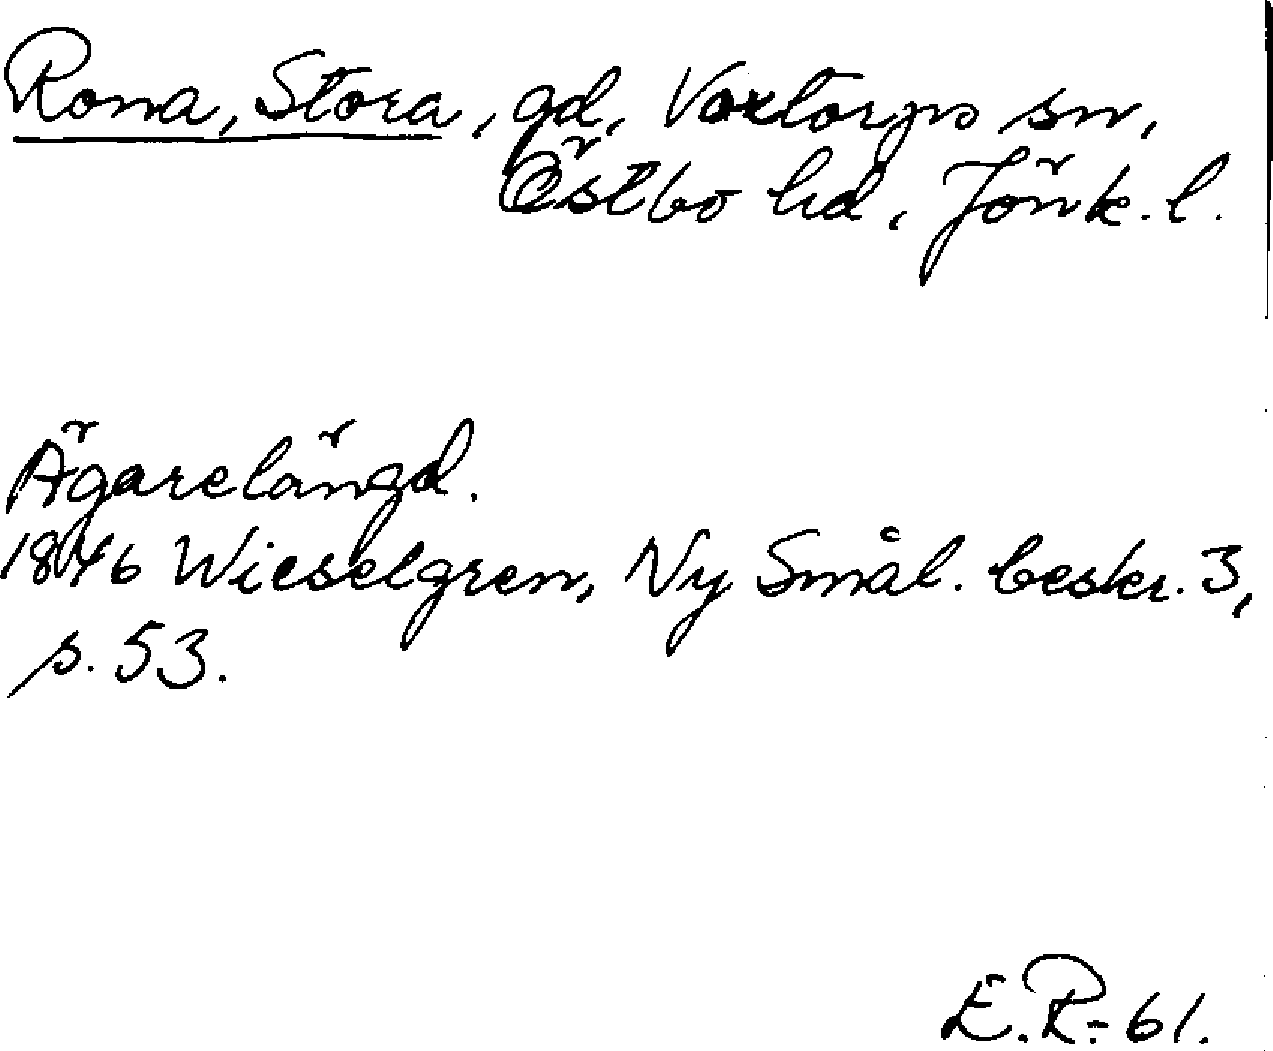 Roma, Stora, gd, Voxtorps sn,
Östbo hd, Jönk. l.
Ägarelängd.
1846 Wieselgren, Ny Smål. beskr. 3,
s. 53.
E.R.-61.